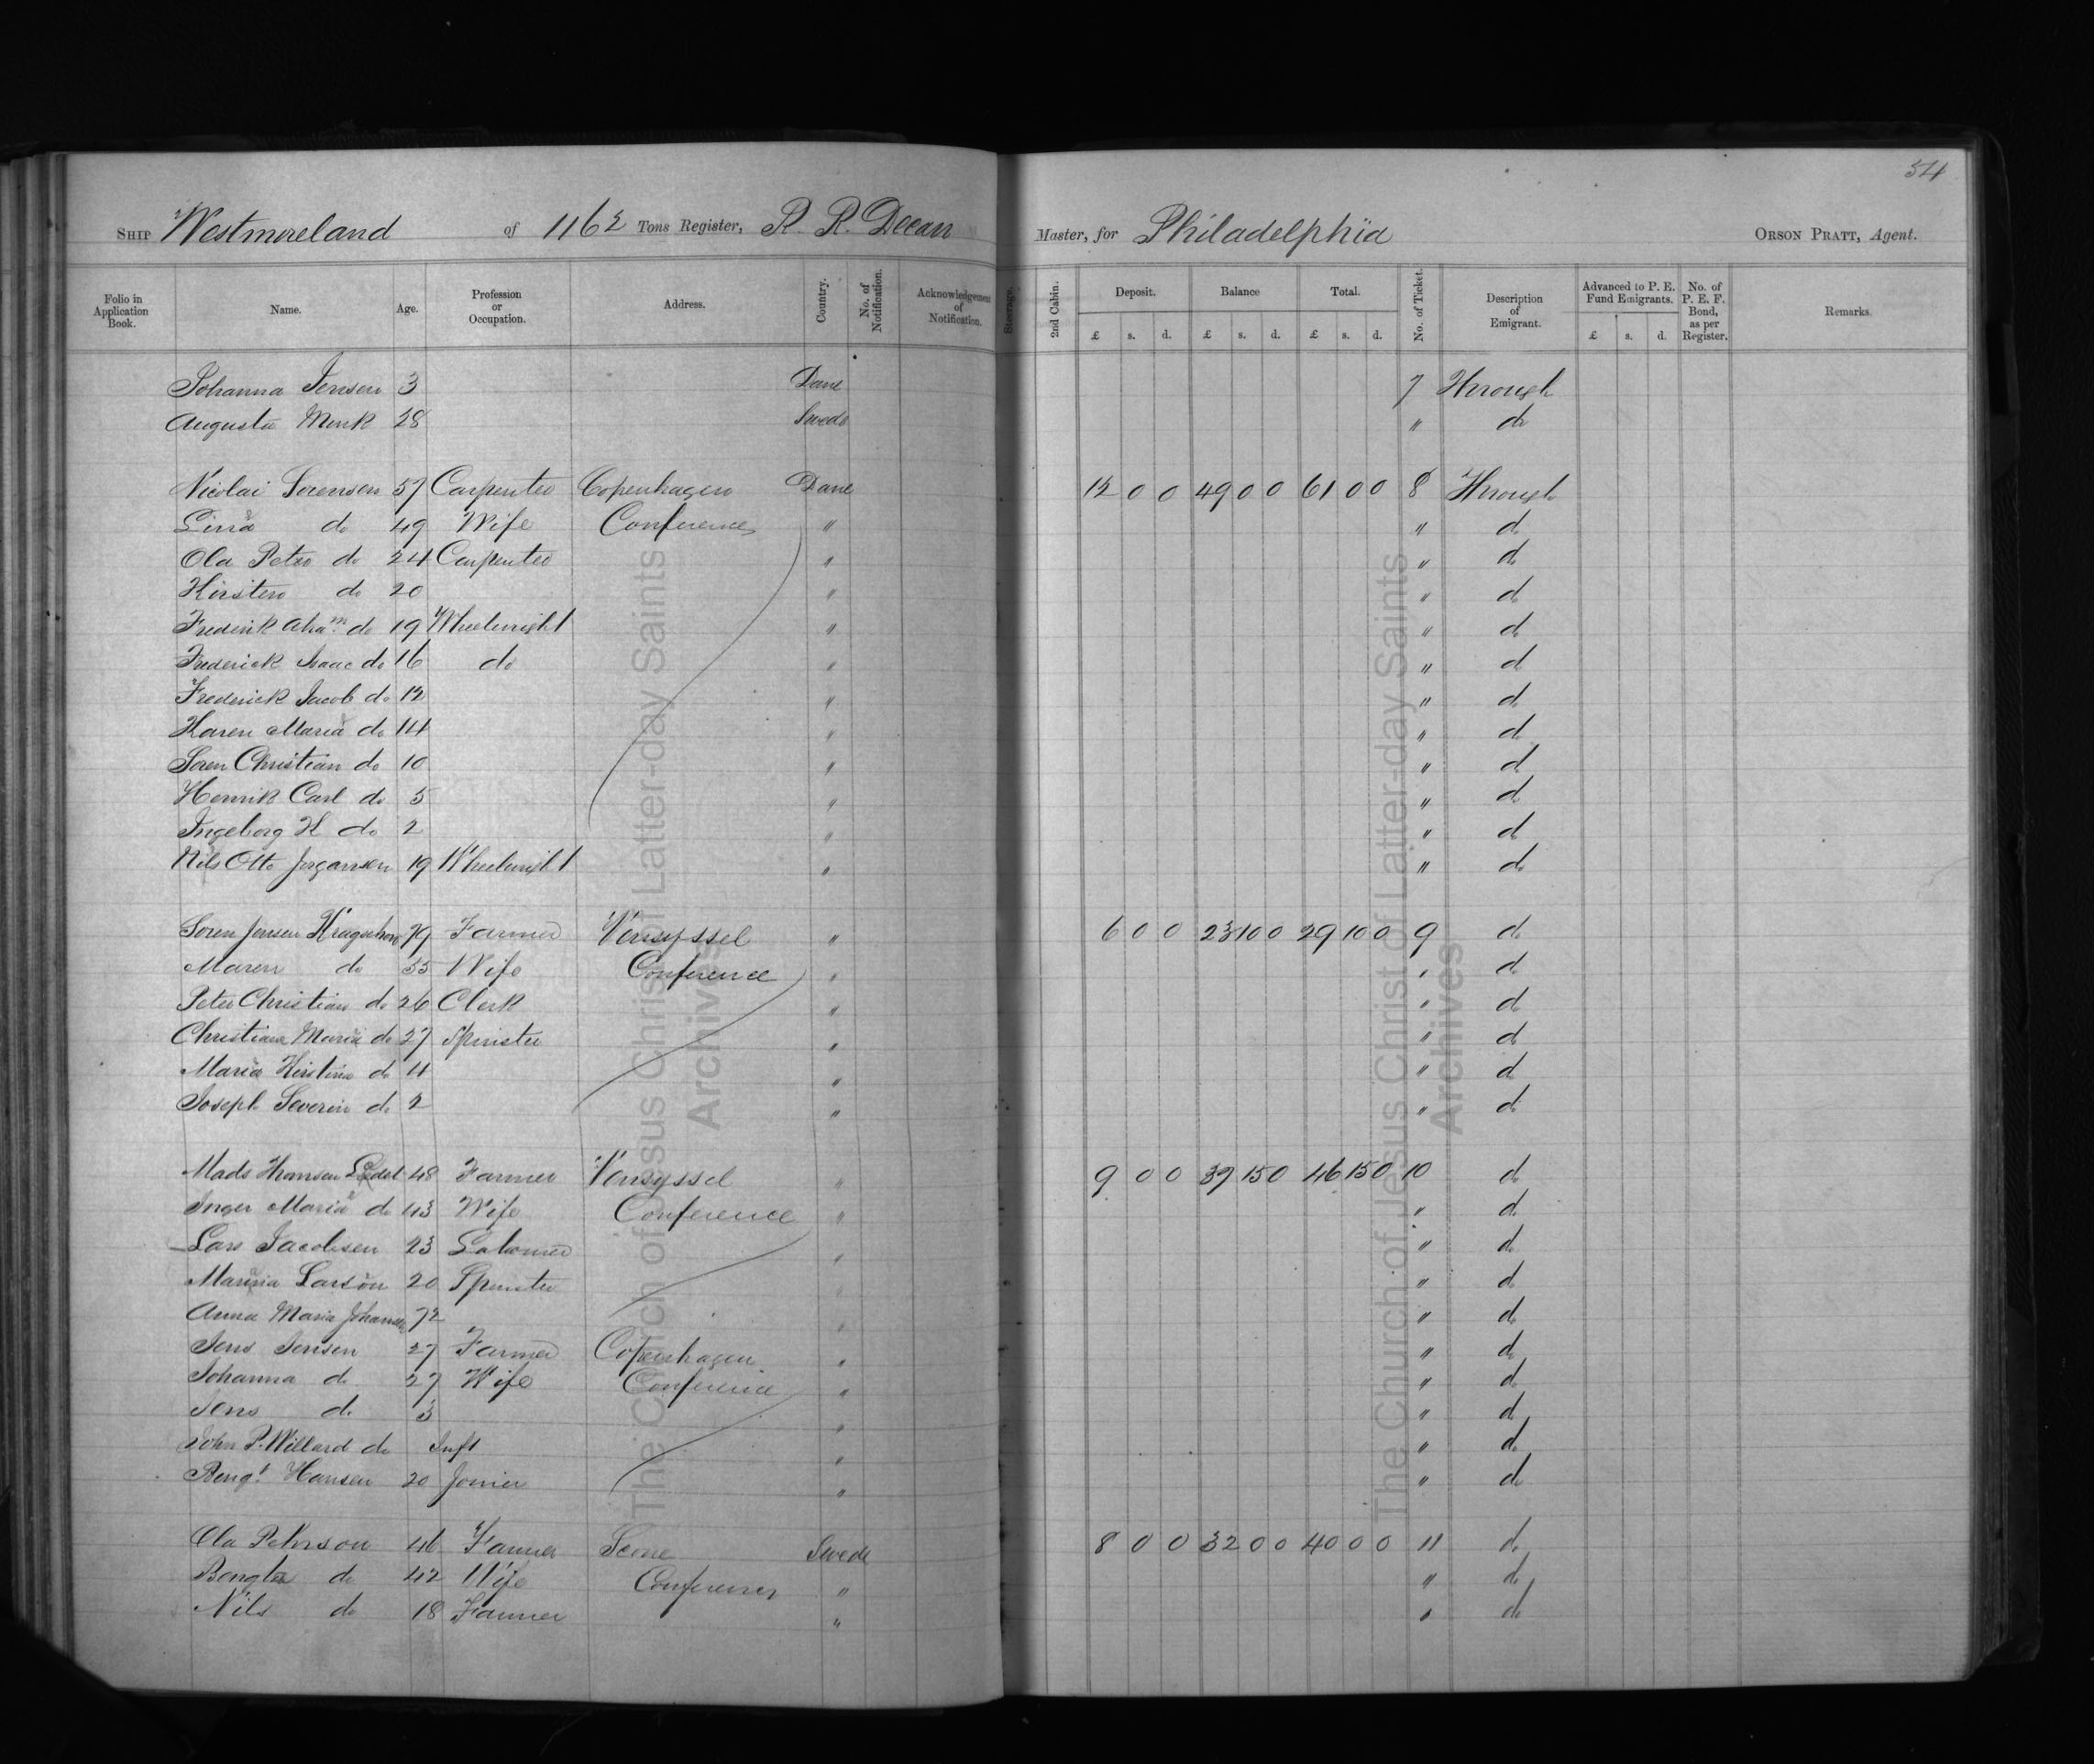 54
SHIP Westmoreland of 1162 Tons Register, R. R. Decan Master, for Philadelphia ORSON PRATT, Agent.
Folio in Application Book. Name. Age. Profession or Occupation. Address. Country. No. of Notification. Acknowledgement of Notification. Steerage. 2nd Cabin. Deposit. £ s. d. Balance £ s. d. Total. £ s. d. No. of Ticket. Description of Emigrant. Advanced to P. E. Fund Emigrants. £ s. d. No. of P. E. F. Bond, as per Register. Remarks.
Johanna Jensen 3 Dane 7 Through
Augusta Munk 28 Swede " do
Nicolai Sorensen 57 Carpenter Copenhagen Dane 12 0 0 49 0 0 61 0 0 8 Through
Lina do 49 Wife Conference " " do
Ola Peter do 24 Carpenter " " do
Kirsten do 20 " " do
Frederik Abam do 19 Wheelwright " " do
Frederick Isaac do 16 do " " do
Frederick Jacob do 12 " " do
Karen Maria do 14 " " do
Soren Christian do 10 " " do
Henrik Carl do 5 " " do
Ingeborg K do 2 " " do
Nils Otto Jorgansen 19 Wheelwright " " do
Soren Jensen 79 Farmer Vensyssel " 6 0 0 23 10 0 29 10 0 9 do
Maren do 55 Wife Conference " " do
Peter Christian do 26 Clerk " " do
Christiane Maria do 27 Spinster " " do
Maria Kirstine do 4 " " do
Joseph Severin do 2 " " do
Mads Hansen 48 Farmer Vensyssel " 9 0 0 37 15 0 46 15 0 10 do
Inger Maria do 43 Wife Conference " " do
Lars Jacobsen 23 Labourer " " do
Larson 20 Spinster " " do
Anna Maria 72 " " do
Jens Jensen 27 Farmer Copenhagen " " do
Johanna do 27 Wife Conference " " do
Jens do 3 " " do
John P. Willard do Inft " " do
Bengt Hansen 20 Joiner " " do
Ola Pehrson 46 Farmer Scone Swede 8 0 0 32 0 0 40 0 0 11 do
Bengta do 42 Wife Conference " " do
Nils do 18 Farmer " " do
The Church of Jesus Christ of Latter-day Saints
Archives
The Church of Jesus Christ of Latter-day Saints
Archives